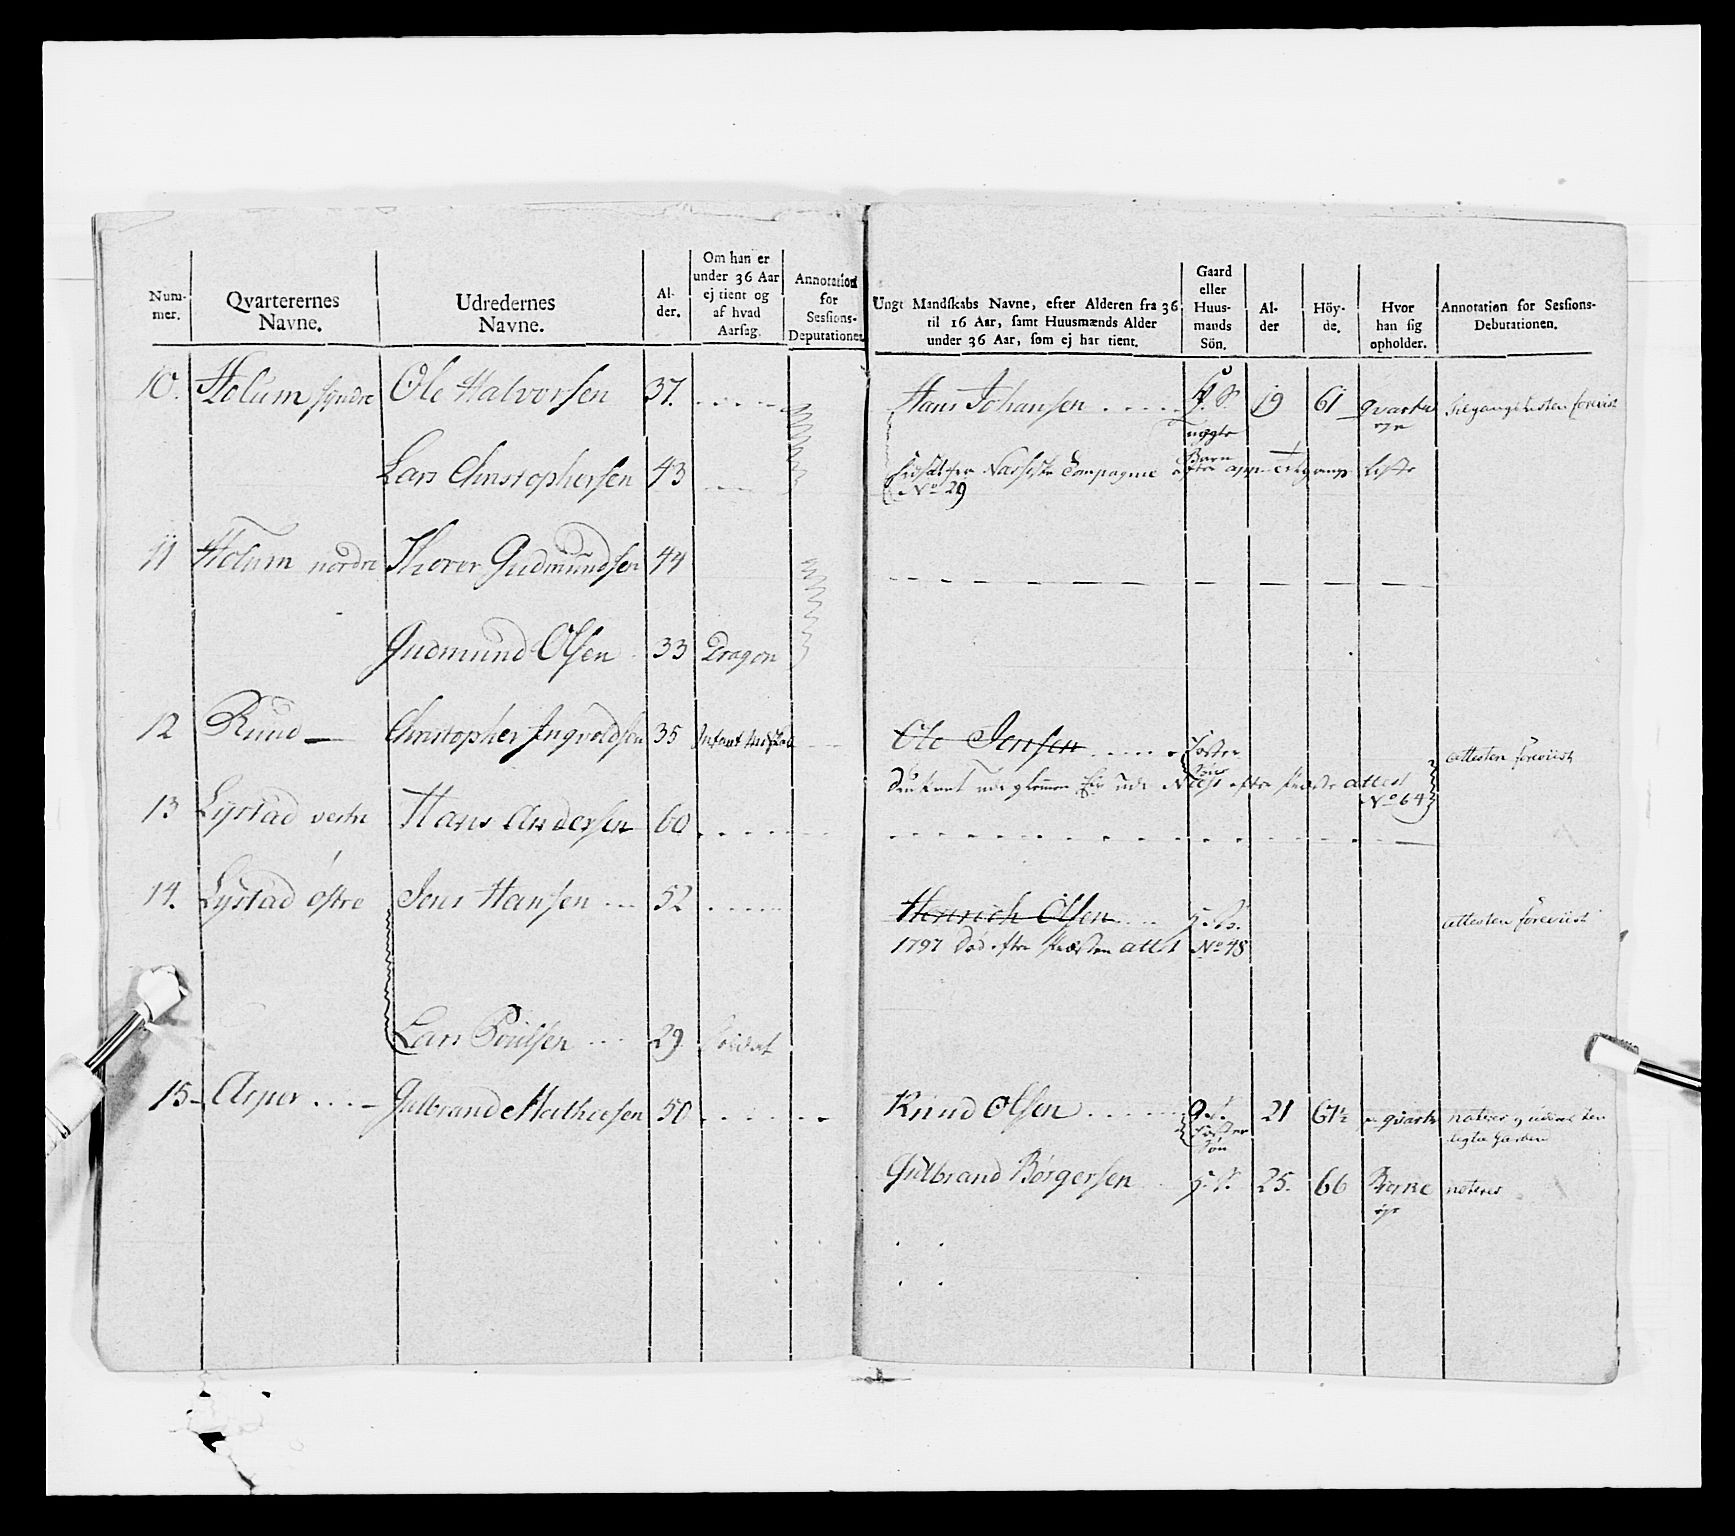 Num-
mer.
Qvarterernes
Navne.
Udredernes
Navne.
Al-
der.
Om han er
under 36 Aar
ej tient og
af hvad
Aarsag.
Annotation
for
Sessions-
Deputationen
Ungt Mandskabs Navne, efter Alderen fra 36
til 16 Aar, samt Huusmænds Alder
under 36 Aar, som ej har tient.
Gaard
eller
Huus-
mands
Sön.
Al-
der
Höy-
de.
Hvor
han sig
opholder.
Annotation for Sessions-
Debutationen.
10. Holum syndre Ole Halvorsen 37. Hans Johansen 19 61 qvarter
Lars Christophersen 43 Compagnie
No 29
11 Holum nordre Thorer Gudmundsen 44
Gudmund Olsen 33 Dragon
12 Rund Christopher Ingvoldsen 35 Ole Jensen Foster Attesten foreviist
Søn
attest
No 64
13 Lystad vestre Hans Andersen 60
14. Lystad østre Jens Hansen 52 Henrich Olsen Attesten foreviist
1797 død efter Præstens attest No 48
Lars Poulsen 29 Soldat
15 Asper Gulbrand Mathiesen 50 Knud Olsen G.S. 21 61½ qvarter noteres
Foster
Søn
Gulbrand Børgersen H.S. 25. 66 noteres